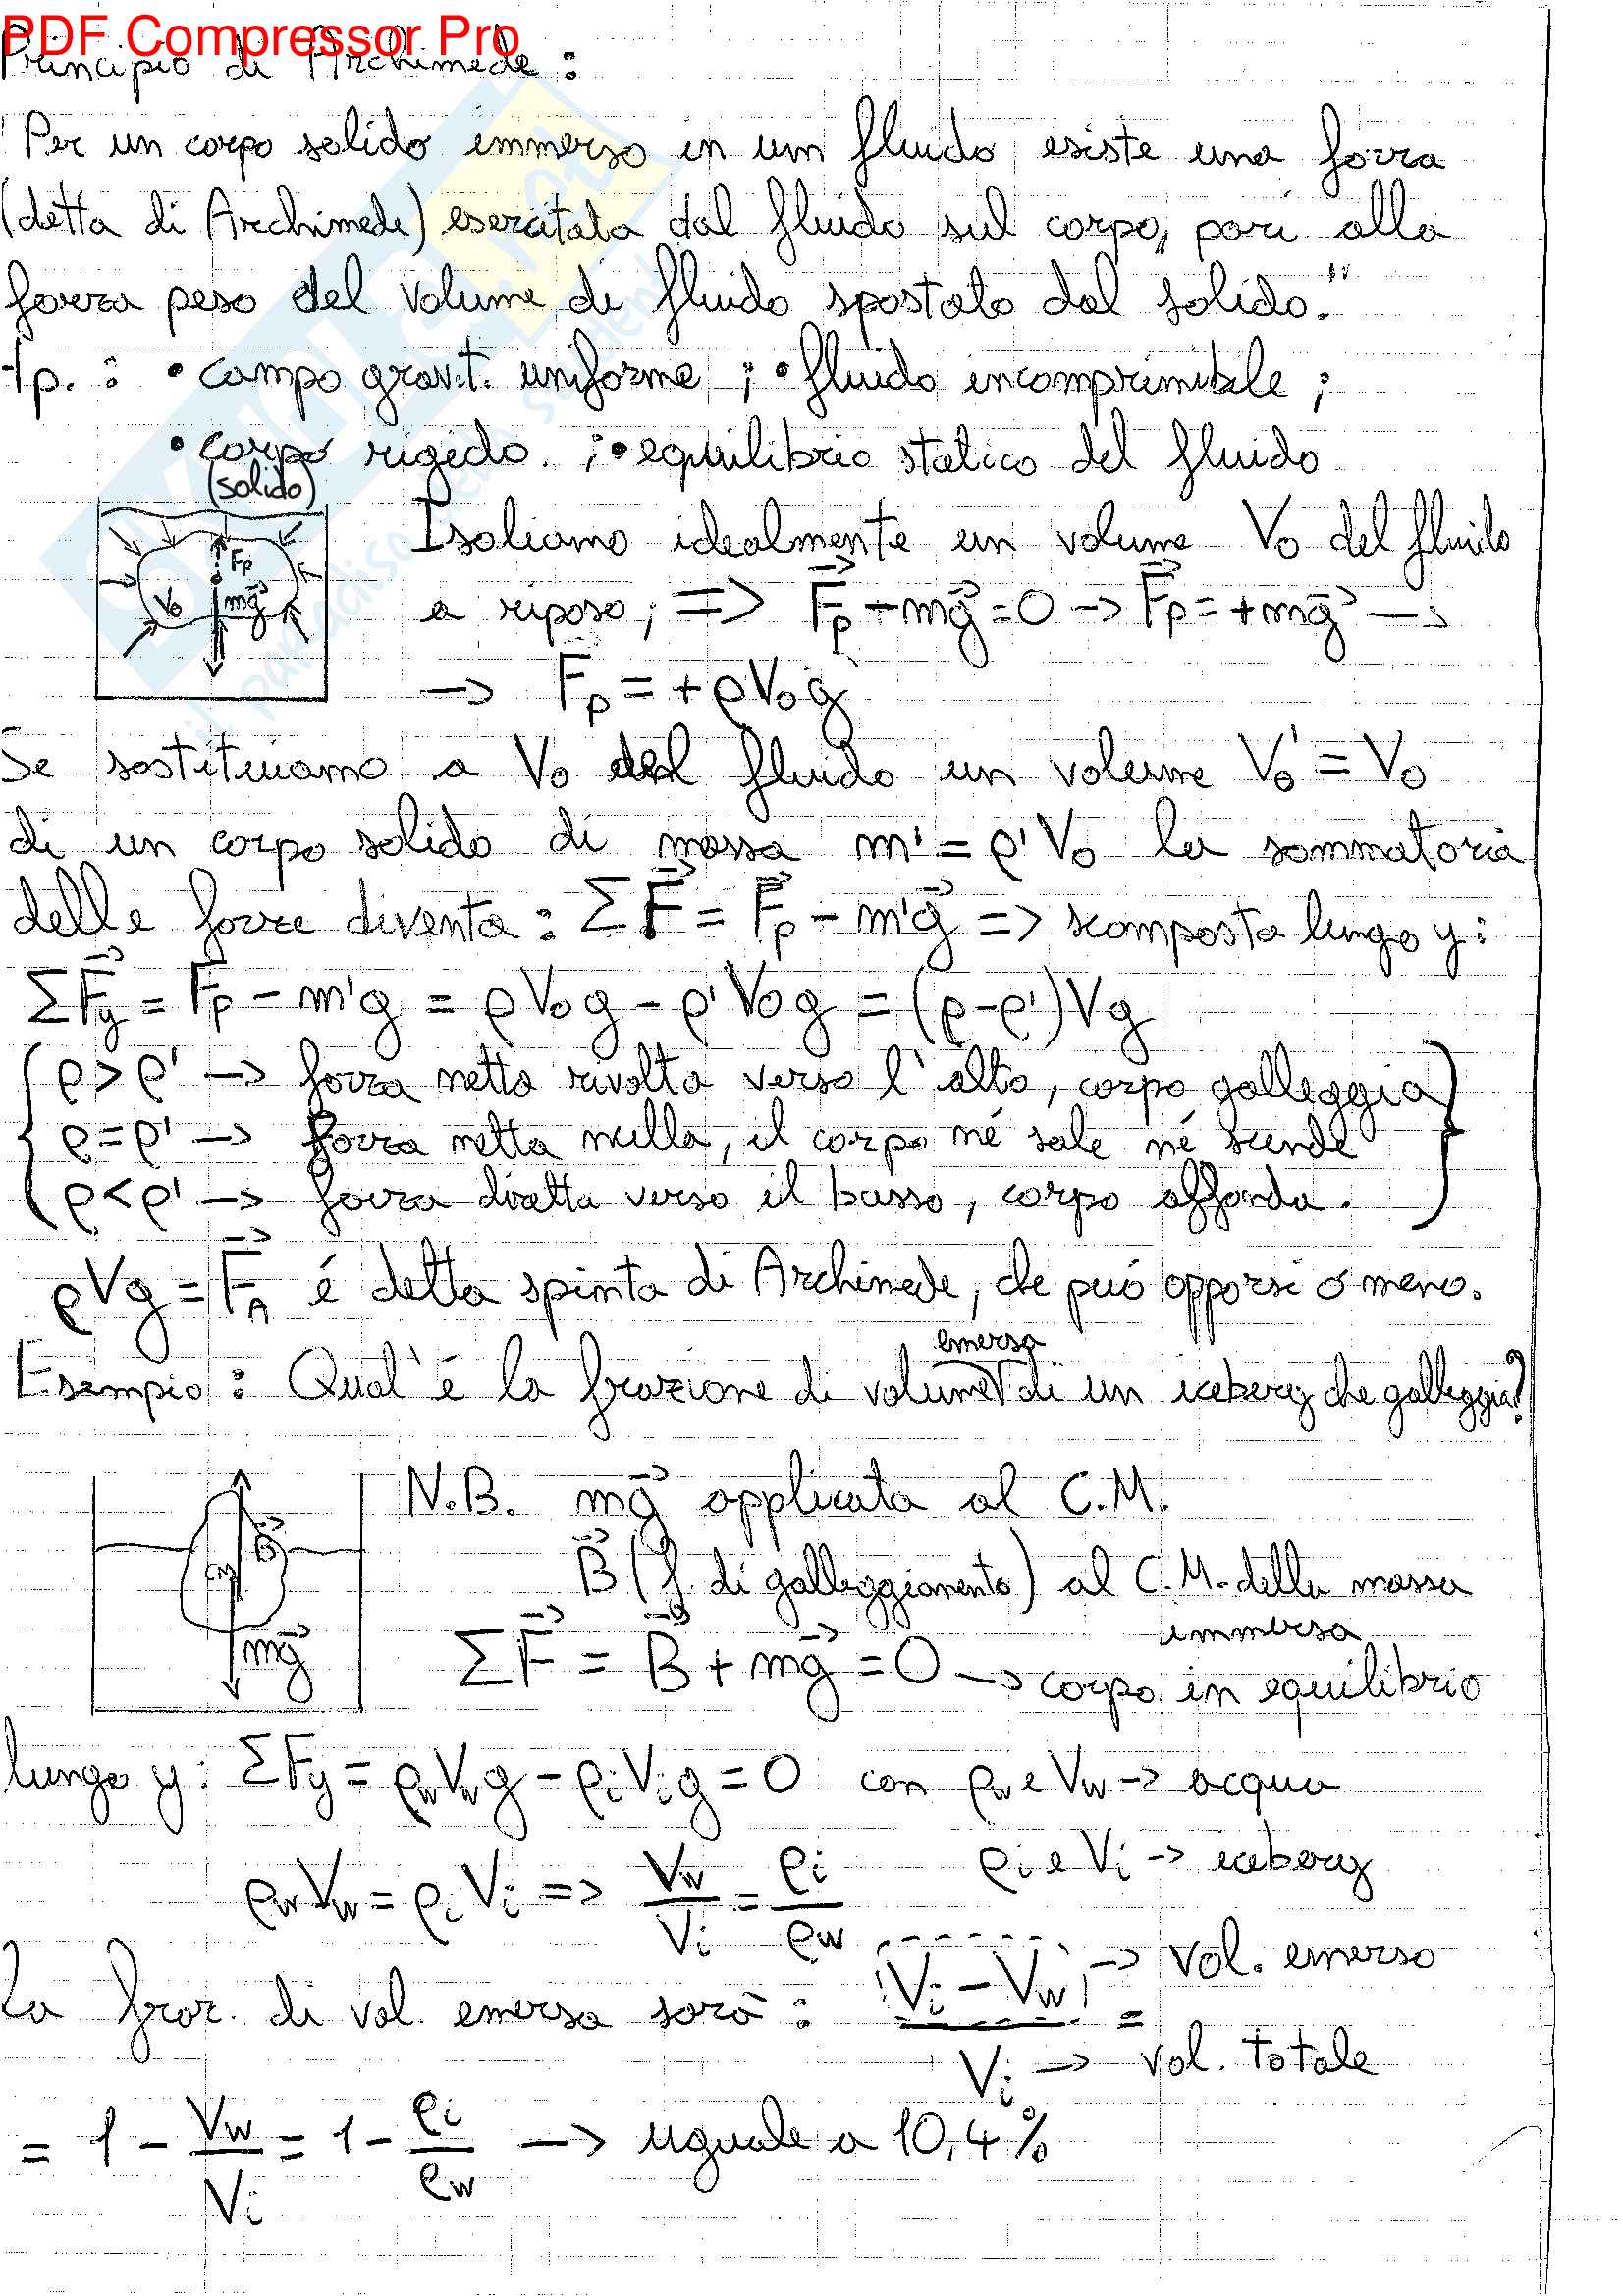 PDF Compressor Pro
Principio di Archimede:
"Per un corpo solido immerso in un fluido esiste una forza
(detta di Archimede) esercitata dal fluido sul corpo, pari alla
forza peso del volume di fluido spostato dal solido."
Ip. : • campo gravit. uniforme ; • fluido incomprimibile ;
• corpo rigido. ; • equilibrio statico del fluido
(solido)
Isoliamo idealmente un volume V₀ del fluido
Fp
V₀ mg⃗
a riposo; => F⃗p - mg⃗ = 0 → F⃗p = + mg⃗ →
→ Fp = + ρV₀g
Se sostituiamo a V₀ del fluido un volume V₀' = V₀
di un corpo solido di massa m' = ρ'V₀ la sommatoria
delle forze diventa: ΣF⃗ = F⃗p - m'g⃗ => scomposta lungo y:
ΣF⃗y = Fp - m'g = ρV₀g - ρ'V₀g = (ρ-ρ')Vg
ρ>ρ' → forza netta rivolta verso l'alto, corpo galleggia
ρ=ρ' → forza netta nulla, il corpo né sale né scende
ρ<ρ' → forza diretta verso il basso, corpo affonda.
ρVg = F⃗A é detta spinta di Archimede, che può opporsi o meno.
emersa
Esempio: Qual'è la frazione di volume di un iceberg che galleggia?
N.B. mg⃗ applicata al C.M.
B⃗
B⃗ (f. di galleggiamento) al C.M. della massa
immersa
mg⃗
ΣF⃗ = B⃗ + mg⃗ = 0 → corpo in equilibrio
lungo y: ΣFy = ρwVwg - ρiVig = 0 con ρw e Vw → acqua
ρi e Vi → iceberg
ρwVw = ρiVi => Vw/Vi = ρi/ρw
La fraz. di vol. emersa sarà: (Vi - Vw)/Vi =
→ vol. emerso
→ vol. totale
= 1 - Vw/Vi = 1 - ρi/ρw → uguale a 10,4%